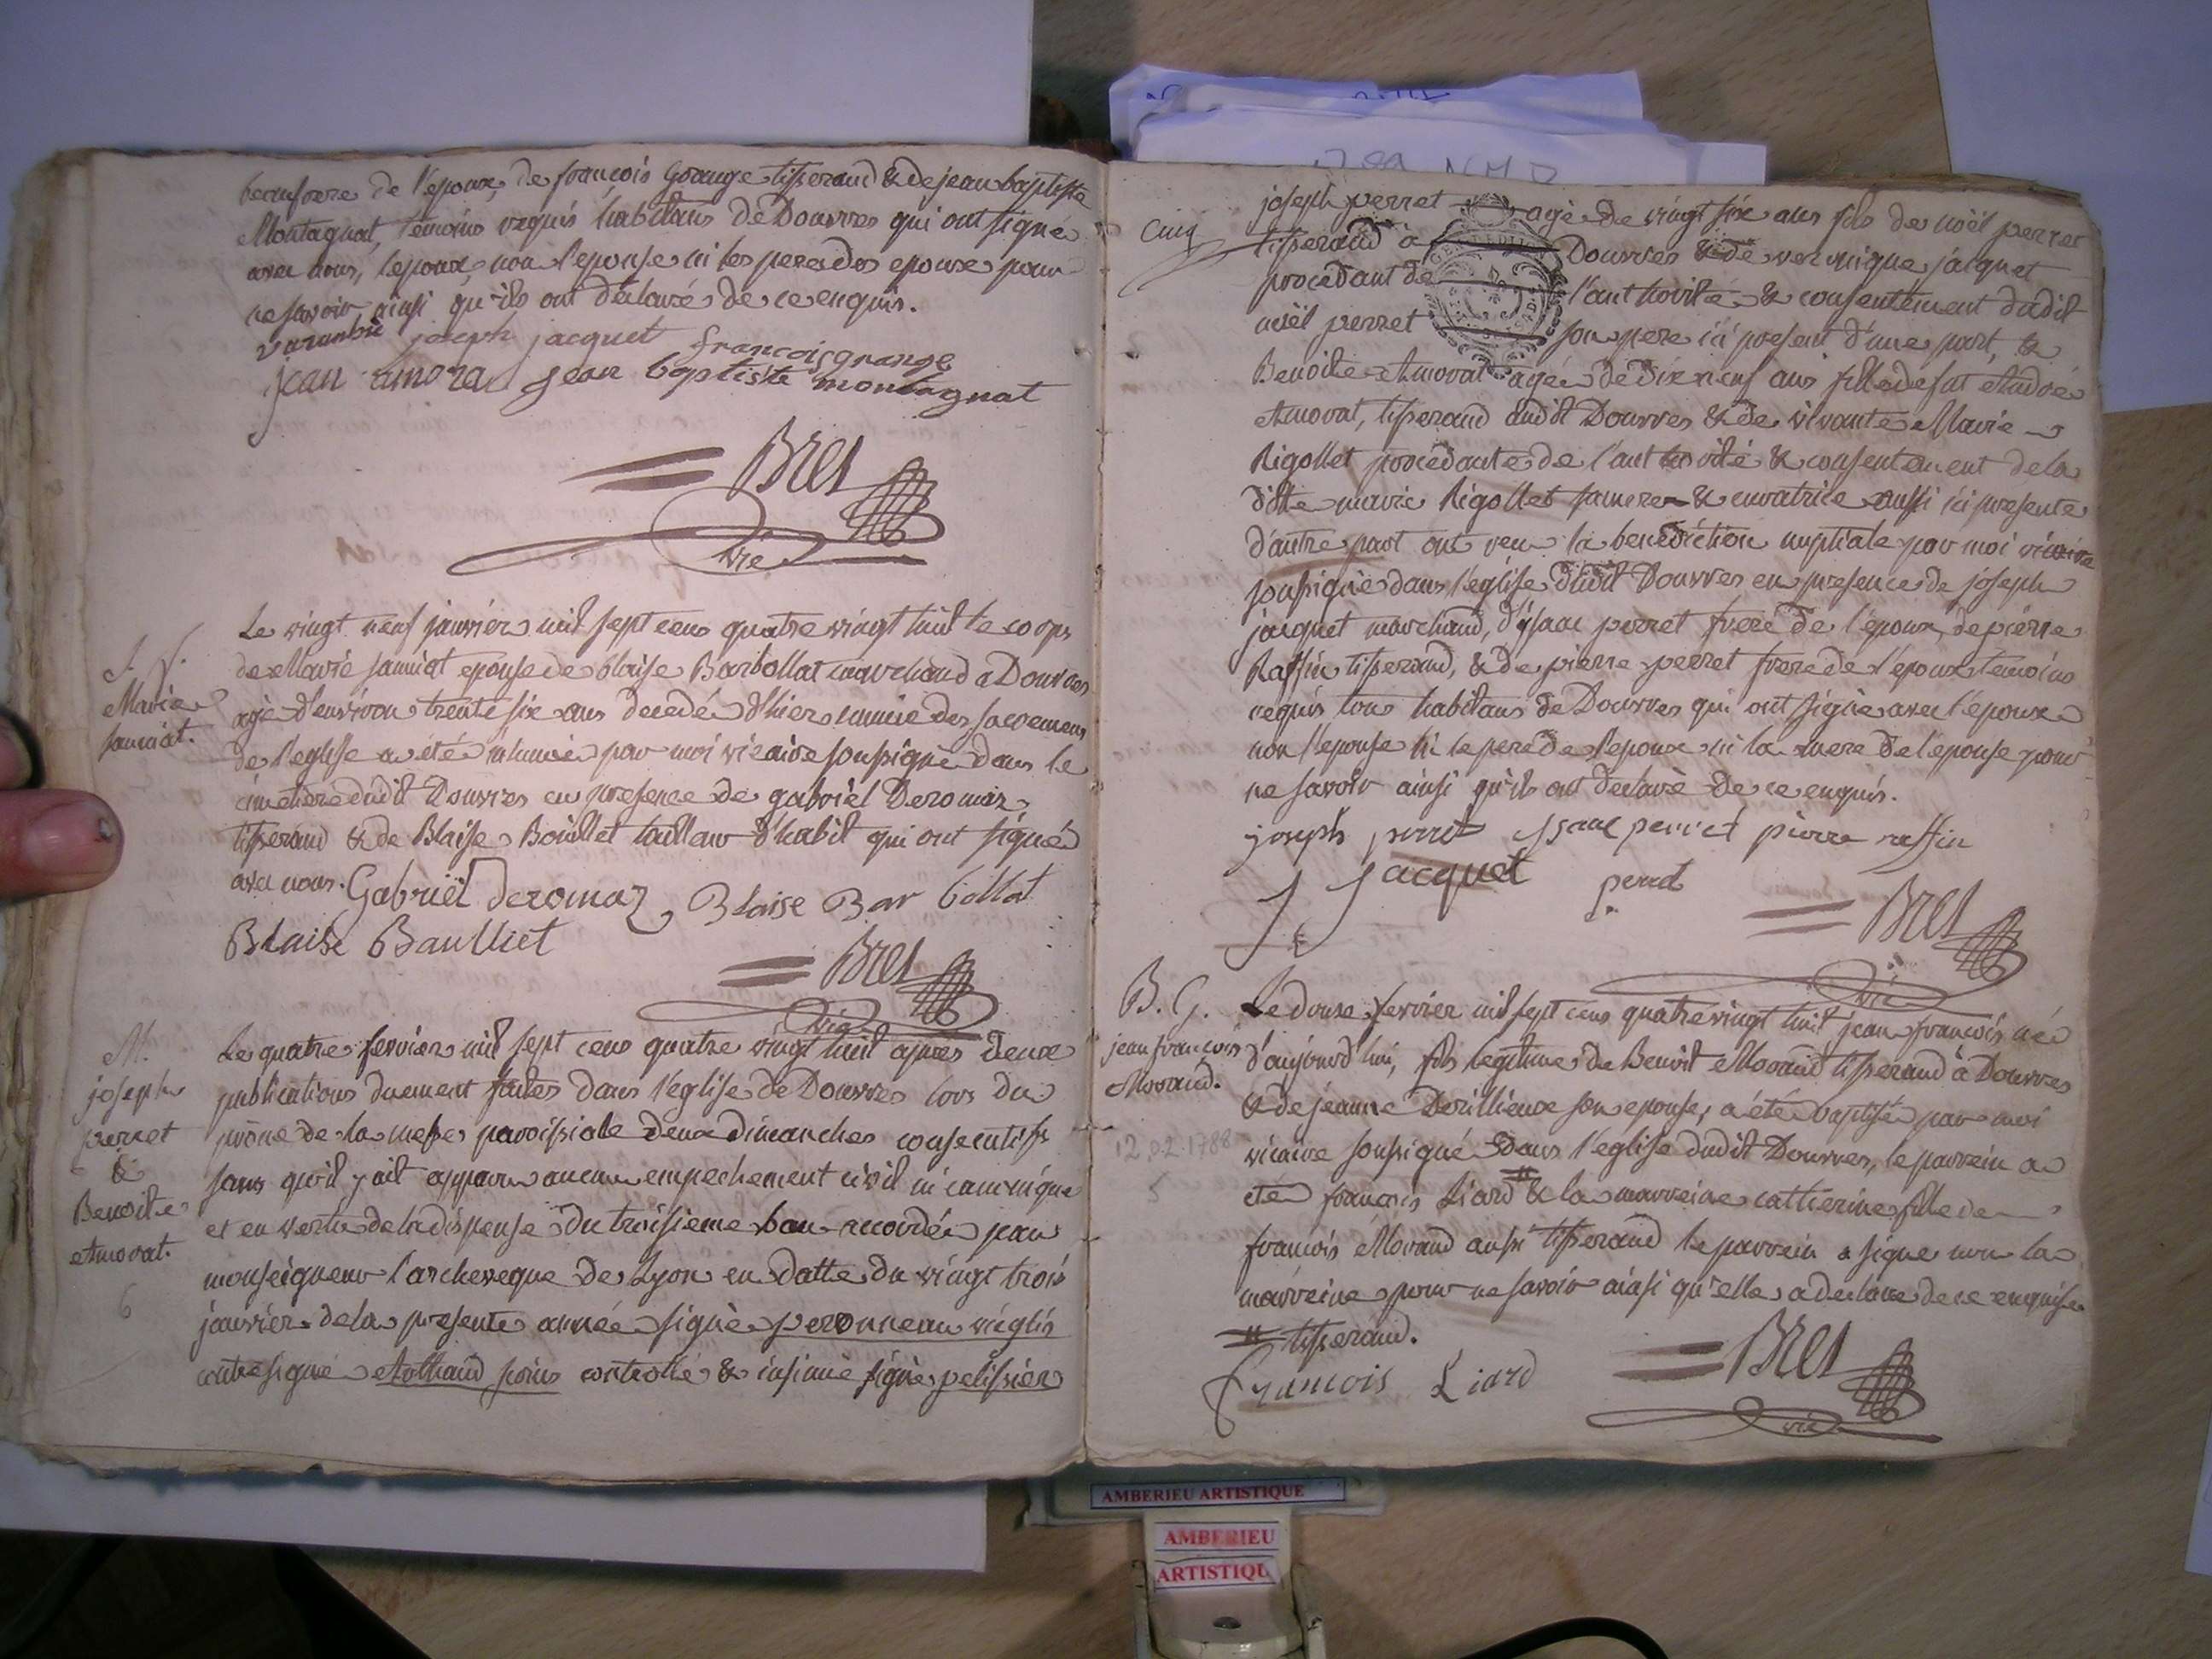 beaufrere de l'epoux, de françois Grange tisserand & de jean baptiste
Montagnat, temoins requis habitans de Douvres qui ont signé
avec nous, l'epoux, non l'epouse ni les peres des epoux pour
ne savoir, ainsi qu'ils ont déclaré de ce enquis.
joseph jacquet françois grange
jean amora jean baptiste montagnat
Bret
vic
Le vingt neuf janvier mil sept cens quatre vingt huit le corps
S. f.
de Marie janniat epouse de blaise Barbollat marchand a Douvres
Marie
agé d'environ trente six ans decedé d'hier munie des sacremens
janniat.
de l'eglise a été inhumée par moi vicaire soussigné dans le
cimetiere dudit Douvres en presence de gabriel Deromaz
tisserand & de Blaise Boulliet tailleur d'habit qui ont signé
avec nous. Gabriël Deromaz, Blaise Barbollat
Blaise Baulliet
Bret
vic
M.
Le quatre fevrier mil sept cens quatre vingt huit apres deux
joseph
publications duement faites dans l'eglise de Douvres lors du
perret
prône de la messe paroissiale deux dimanches consecutifs
&
sans qu'il y ait apparu aucun empechement civil ni canonique
Benoite
et en vertu de la dispense du troisieme ban accordée par
Amorat.
monseigneur l'archeveque de Lyon en datte du vingt trois
6
janvier de la presente année signé peronneau vicglis
contresigné Rolland controllé & insinué signé pelissier
cinq
joseph perret agé de vingt six ans fils de noël perret
tisserand à Douvres & de veronique jacquet
procedant de l'authorité & consentement dudit
noël perret son pere ici present d'une part, &
Benoite Amorat agée de dix neuf ans fille de fut André
Amorat, tisserand audit Douvres & de vivante Marie
Rigollet procedante de l'authorité & consentement de la
ditte marie Rigollet sa mere & curatrice aussi ici presente
d'autre part ont reçu la benediction nuptiale par moi vicaire
soussigné dans l'eglise dudit Douvres en presence de joseph
jacquet marchand, d'isaac perret frere de l'epoux, de pierre
Raffin tisserand, & de pierre perret frere de l'epoux temoins
requis tous habitans de Douvres qui ont signé avec l'epoux
non l'epouse ni le pere de l'epoux ni la mere de l'epouse pour
ne savoir ainsi qu'ils ont declaré de ce enquis.
joseph perret Isaac perret pierre raffin
J Jacquet perret
Bret
vic
B. G.
Le douze fevrier mil sept cens quatre vingt huit jean françois né
jean françois
d'aujourd'hui, fils legitime de Benoit Morand tisserand à Douvres
Morand.
& de jeanne Derillieux son epouse, a été baptisé par moi
12.02.1788
vicaire soussigné dans l'eglise dudit Douvres, le parrein a
5
été françois Liard # & la marreine catherine fille de
françois Morand aussi tisserand le parrein a signé non la
marreine pour ne savoir ainsi qu'elle a declaré de ce enquise
# tisserand.
François Liard
Bret
vic
AMBERIEU ARTISTIQUE
AMBERIEU
ARTISTIQU